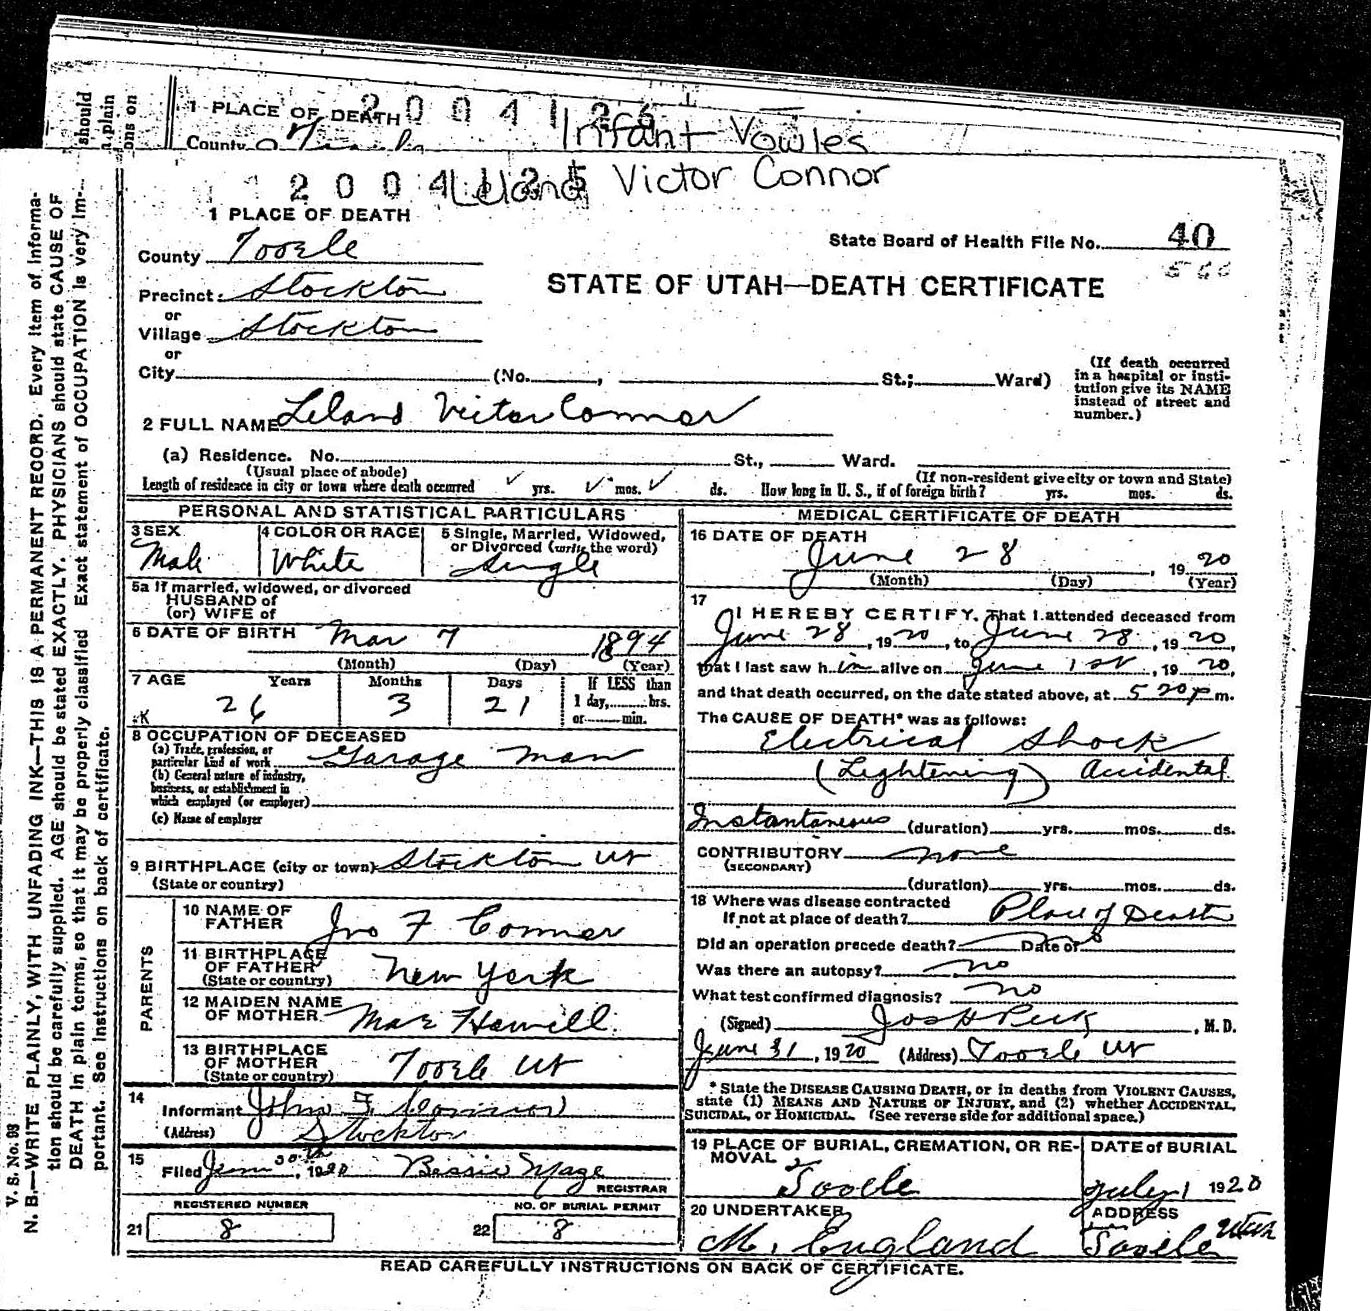 1 PLACE OF DEATH
2004126
County Tooele
Infant Vowles
should
plain
ons on
2004125
Leland Victor Connor
1 PLACE OF DEATH
County Tooele
State Board of Health File No. 40
Precinct Stockton
STATE OF UTAH—DEATH CERTIFICATE
or
Village Stockton
or
City (No. , St.; Ward)
(If death occurred in a hospital or insti-
tution give its NAME instead of street and number.)
2 FULL NAME Leland Victor Connor
(a) Residence. No. St., Ward.
(Usual place of abode) (If non-resident give city or town and State)
Length of residence in city or town where death occurred yrs. mos. ds. How long in U. S., if of foreign birth? yrs. mos. ds.
PERSONAL AND STATISTICAL PARTICULARS
3 SEX Male
4 COLOR OR RACE White
5 Single, Married, Widowed, or Divorced (write the word) Single
5a If married, widowed, or divorced
HUSBAND of
(or) WIFE of
6 DATE OF BIRTH Mar 7 1894
(Month) (Day) (Year)
7 AGE Years Months Days If LESS than
26 3 21 1 day, hrs.
or min.
8 OCCUPATION OF DECEASED
(a) Trade, profession, or
particular kind of work Garage man
(b) General nature of industry,
business, or establishment in
which employed (or employer)
(c) Name of employer
9 BIRTHPLACE (city or town) Stockton Ut
(State or country)
PARENTS
10 NAME OF
FATHER Jno F Connor
11 BIRTHPLACE
OF FATHER
(State or country) New York
12 MAIDEN NAME
OF MOTHER Mae
13 BIRTHPLACE
OF MOTHER
(State or country) Tooele Ut
14
Informant John F. Connor
(Address) Stockton
15
Filed June 30th, 1920 Bessie Mage
REGISTRAR
REGISTERED NUMBER NO. OF BURIAL PERMIT
21 8 22 8
MEDICAL CERTIFICATE OF DEATH
16 DATE OF DEATH
June 28, 1920
(Month) (Day) (Year)
17
I HEREBY CERTIFY, That I attended deceased from
June 28, 1920, to June 28, 1920,
that I last saw him alive on June 1st, 1920,
and that death occurred, on the date stated above, at 5 20 p m.
The CAUSE OF DEATH* was as follows:
Electrical Shock
(Lightening) Accidental
Instantaneous (duration) yrs. mos. ds.
CONTRIBUTORY none
(SECONDARY)
(duration) yrs. mos. ds.
18 Where was disease contracted
If not at place of death? Place of Death
Did an operation precede death? no Date of
Was there an autopsy? no
What test confirmed diagnosis? no
(Signed) Jos H Peck, M. D.
June 31, 1920 (Address) Tooele Ut
* State the DISEASE CAUSING DEATH, or in deaths from VIOLENT CAUSES,
state (1) MEANS AND NATURE OF INJURY, and (2) whether ACCIDENTAL,
SUICIDAL, or HOMICIDAL. (See reverse side for additional space.)
19 PLACE OF BURIAL, CREMATION, OR RE-
MOVAL Tooele
DATE of BURIAL
July 1 1920
20 UNDERTAKER
M. England
ADDRESS
Tooele Utah
READ CAREFULLY INSTRUCTIONS ON BACK OF CERTIFICATE.
V. S. No. 98
N. B.—WRITE PLAINLY, WITH UNFADING INK—THIS IS A PERMANENT RECORD. Every item of informa-
tion should be carefully supplied. AGE should be stated EXACTLY. PHYSICIANS should state CAUSE OF
DEATH in plain terms, so that it may be properly classified. Exact statement of OCCUPATION is very im-
portant. See instructions on back of certificate.